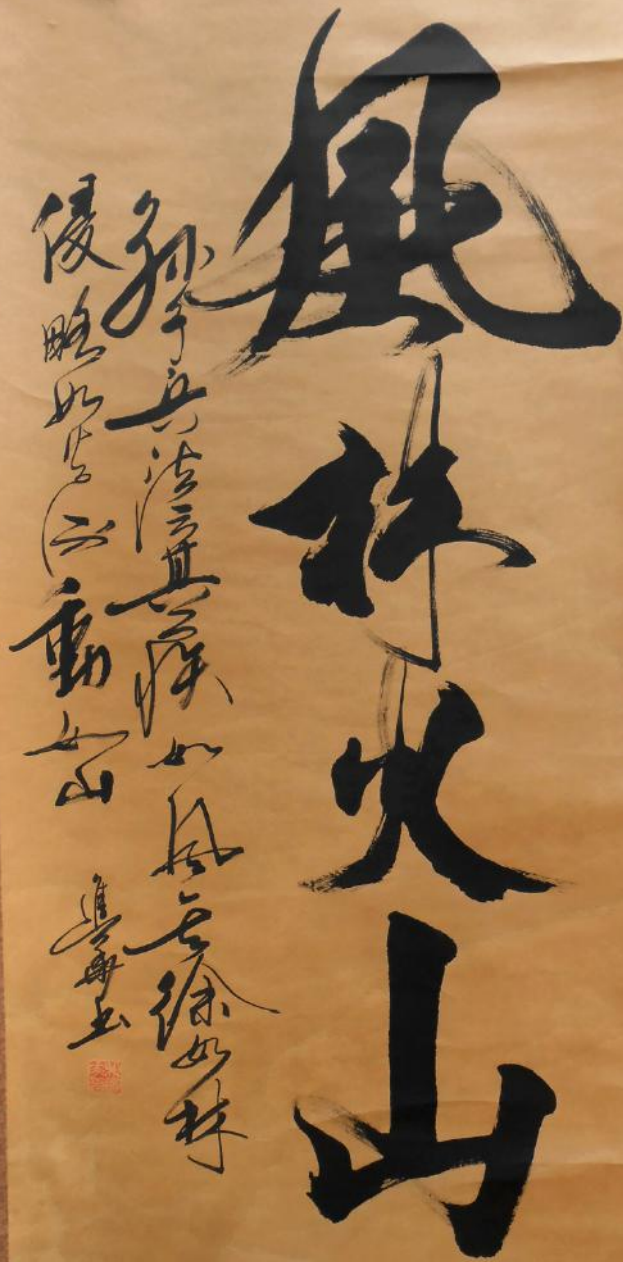 風林火山
孫子兵法云其疾如風其徐如林
侵略如火不動如山
進華書